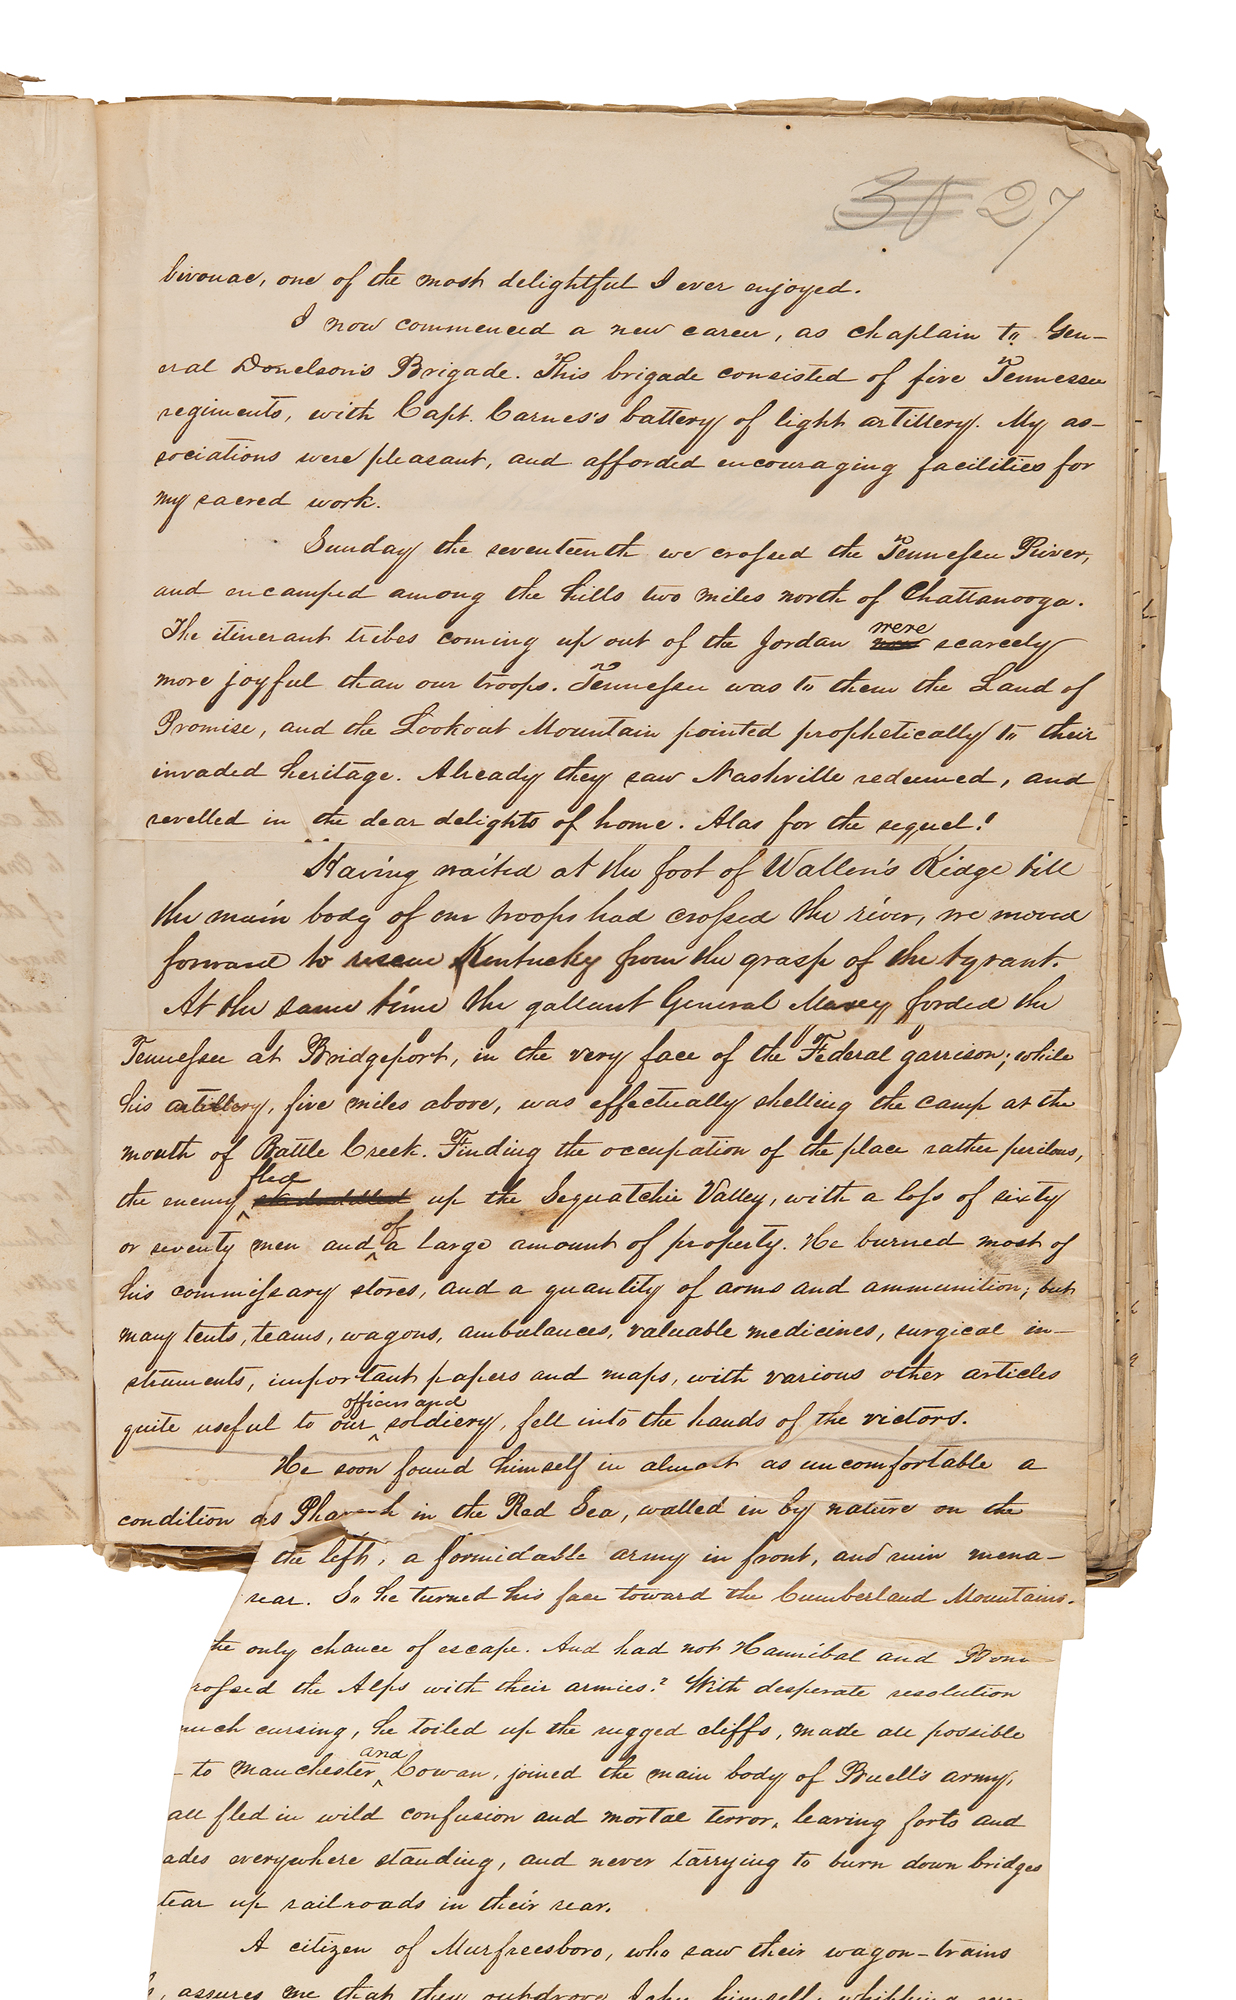 30 27
bivouac, one of the most delightful I ever enjoyed.
I now commenced a new career, as chaplain to Gen-
eral Donelson's Brigade. This brigade consisted of five Tennessee
regiments, with Capt. Carnes's battery of light artillery. My as-
sociations were pleasant, and afforded encouraging facilities for
my sacred work.
Sunday the seventeenth we crossed the Tennessee River,
and encamped among the hills two miles north of Chattanooga.
were
The itinerant tribes coming up out of the Jordan scarcely
more joyful than our troops. Tennessee was to them the Land of
Promise, and the Lookout Mountain pointed prophetically to their
invaded heritage. Already they saw Nashville redeemed, and
revelled in the dear delights of home. Alas for the sequel!
Having waited at the foot of Wallen's Ridge till
the main body of our troops had crossed the river, we moved
forward to rescue Kentucky from the grasp of the tyrant.
At the same time the gallant General Maxey forded the
Tennessee at Bridgeport, in the very face of the Federal garrison; while
his artillery, five miles above, was effectually shelling the camp at the
mouth of Battle Creek. Finding the occupation of the place rather perilous,
fled
the enemy skedaddled up the Sequatchie Valley, with a loss of sixty
of
or seventy men and a large amount of property. He burned most of
his commissary stores, and a quantity of arms and ammunition; but
many tents, teams, wagons, ambulances, valuable medicines, surgical in-
struments, important papers and maps, with various other articles
officers and
quite useful to our soldiery, fell into the hands of the victors.
He soon found himself in almost as uncomfortable a
condition as Pharaoh in the Red Sea, walled in by nature on the
the left, a formidable army in front, and ruin mena-
rear. So he turned his face toward the Cumberland Mountains.
the only chance of escape. And had not Hannibal and Bona-
rossed the Alps with their armies? With desperate resolution
much cursing, he toiled up the rugged cliffs, made all possible
and
to Manchester Cowan, joined the main body of Buell's army,
all fled in wild confusion and mortal terror, leaving forts and
ades everywhere standing, and never tarrying to burn down bridges
tear up railroads in their rear.
A citizen of Murfreesboro, who saw their wagon-trains
assures me that they outdrove Jehu himself, whipping